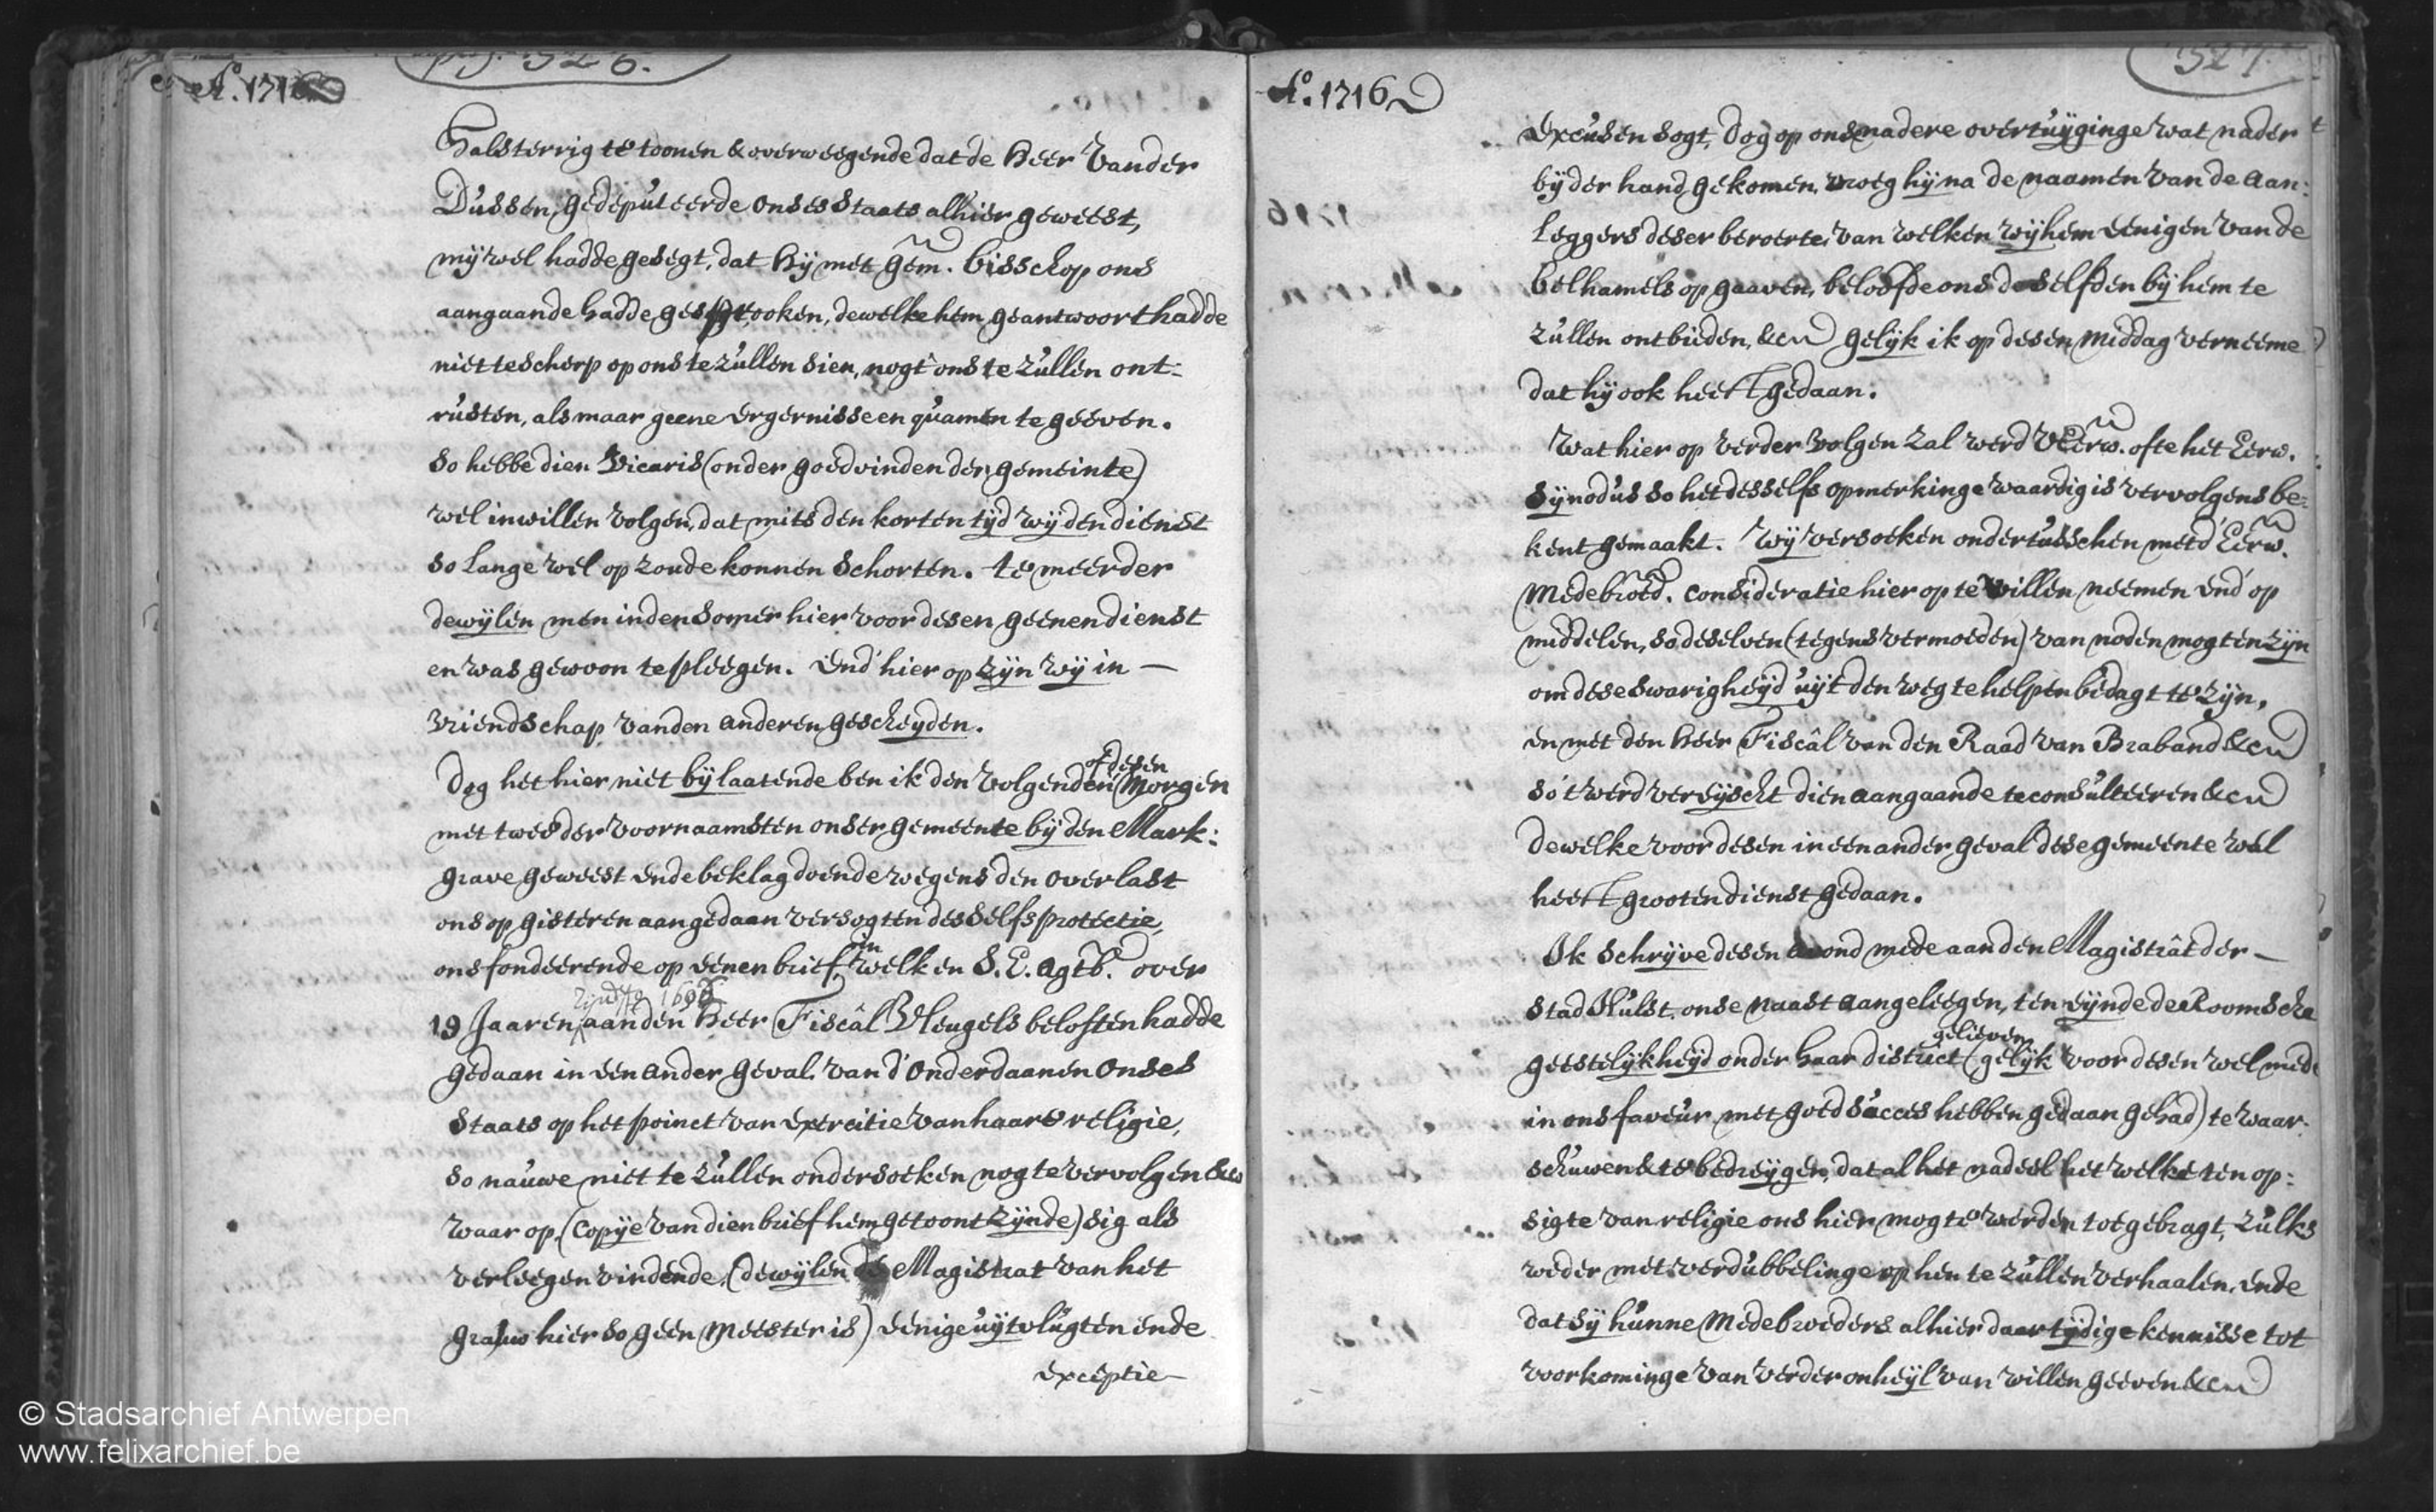 pag. 326.
A°. 1716
Halsterrig te toonen & overweegende dat de Heer Vander
Dussen, gedeputeerde onses Staats alhier geweest,
mij wel hadde gesegt, dat hij met gem. bisschop ons
aangaande hadde gesprooken, dewelke hem geantwoort hadde
niet te scherp op ons te zullen sien, nogt ons te zullen ont:
rusten, als maar geene ergernisse en quamen te geeven.
so hebbe dien Vicaris (onder goedvinden der gemeinte)
wel inwillen volgen, dat mits den korten tijd wij den dienst
so lange wel op zoude konnen schorten. te meerder
dewijlen men inden somer hier voor desen geenen dienst
en was gewoon te pleegen. End' hier op zijn wij in —
vriendschap van den anderen gescheyden.
Dog het hier niet bij laatende ben ik den volgenden of desen Morgen
met twee der voornaamsten onser gemeente bij den Mark:
grave geweest ende beklag doende wegens den overlast
ons op gisteren aangedaan versogten desselfs protectie,
ons fondeerende op eenen brief, in welken S. E. Agtb. over
19 Jaaren, zijnde 1696 aan den Heer Fiscâl Vleugels beloften hadde
gedaan in een ander geval van d'onderdaanen onses
staats op het poinct van exercitie van haare religie,
so nauwe niet te zullen ondersoeken nog te vervolgen &c
waar op, (copije van dien brief hem getoont zijnde) sig als
verleegen vindende, (dewijlen de Magistrat van het
grauw hier so geen meester is) eenige uijtvlugten ende
exceptie
327.
A°. 1716
excusen sogt, dog op onse nadere overtuijginge wat nader
bij der hand gekomen, vroeg hij na de naamen van de aan:
leggers deser beroerte, van welken wij hem eenigen van de
belhamels op gaaven, beloofde ons deselfden bij hem te
zullen ontbieden, &c gelijk ik op desen middag verneeme
dat hij ook heeft gedaan.
Wat hier op verder volgen zal werd VEerw. ofte het Eerw.
Sijnodus so het desselfs opmerkinge waardig is vervolgens be:
kent gemaakt. Wij versoeken ondertusschen met d'Eerw.
Medebroed. consideratie hier op te willen neemen end' op
middelen, so deselven (tegens vermoeden) van noden mogten zijn
om dese swarigheijd uijt den weg te helpen bedagt te zijn,
en met den Heer Fiscâl van den Raad van Braband &c
so 't werd vereijscht dien aangaande te consulteeren &c
dewelke voor desen in een ander geval dese gemeente wel
heeft grooten dienst gedaan.
Ik schrijve desen avond mede aan den Magistrât der —
stad Hulst, onse naast aangeleegen, ten eijnde de Roomsche
geestelijkheijd onder haar district (gelijk gelieven voor desen wel mede
in ons faveur met goed succes hebben gedaan gehad) te waar:
schuwen & te bedreijgen, dat al het nadeel het welke ten op:
sigte van religie ons hier mogte werden toegebragt, zulks
weder met verdubbelinge op hen te zullen verhaalen, ende
dat sij hunne Medebroeders alhier daar tijdige kennisse tot
voorkominge van verder onheijl van willen geeven &c
© Stadsarchief Antwerpen
www.felixarchief.be